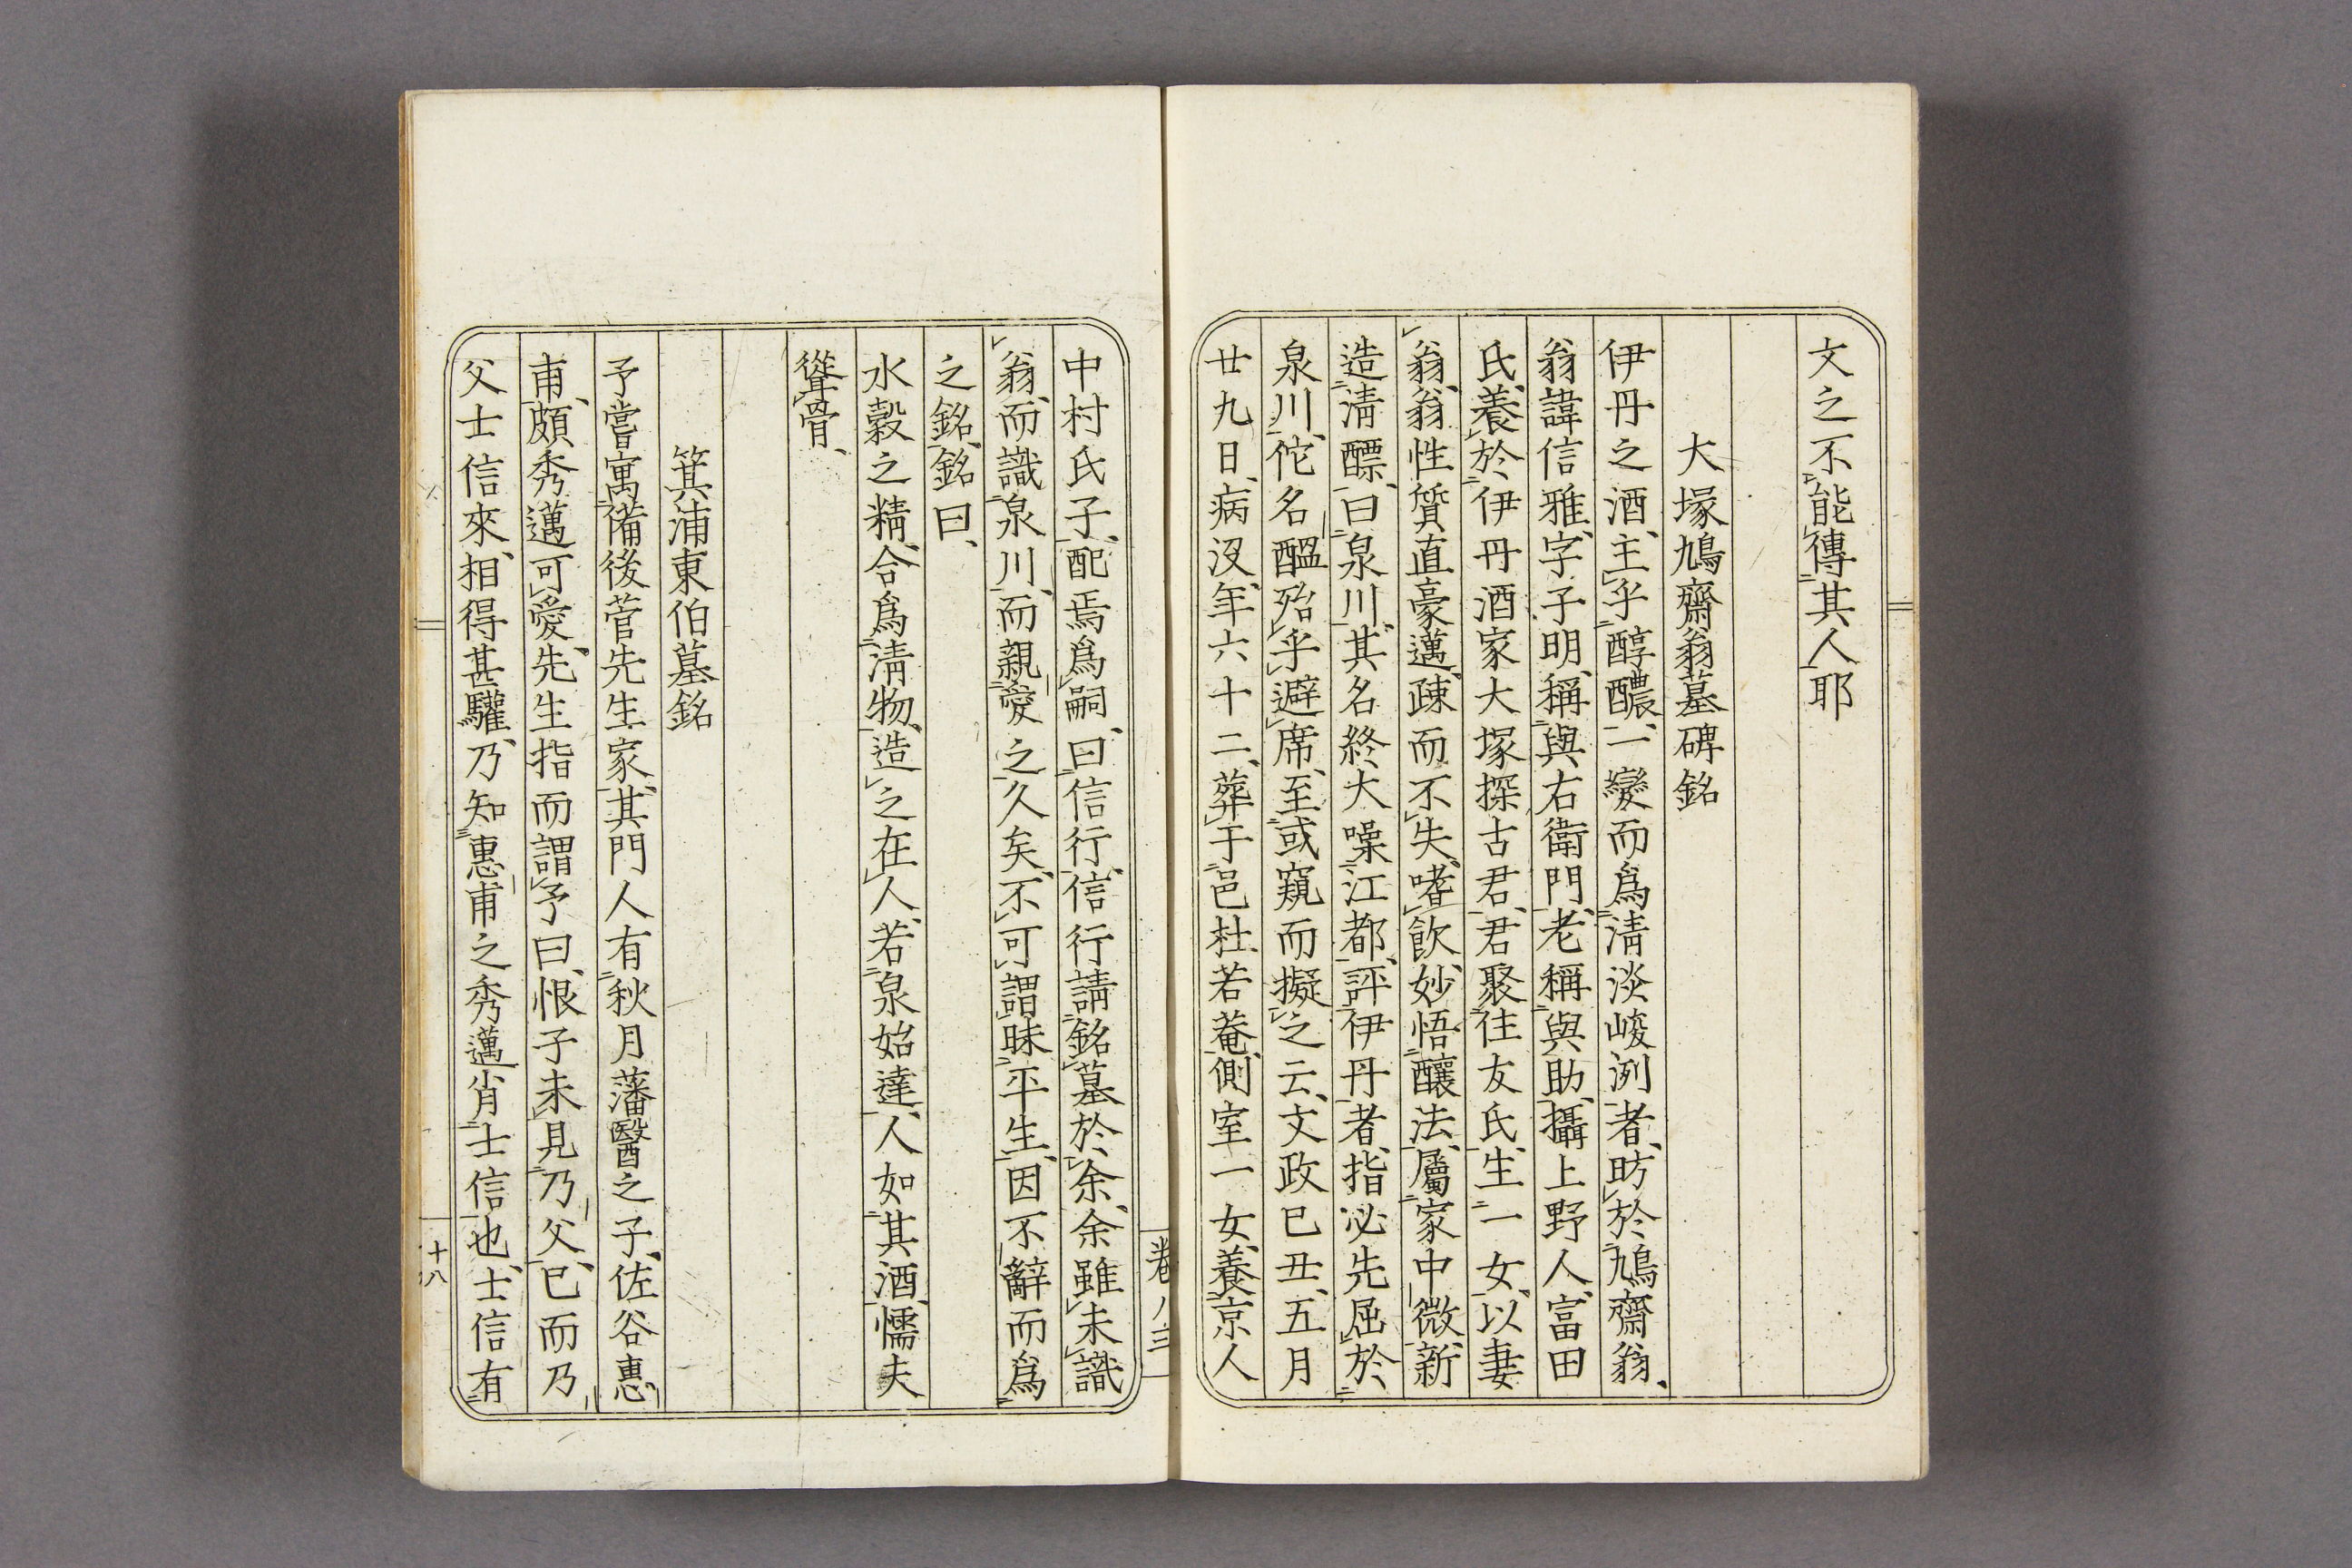 文之不能傳其人耶
大塚鳩齋翁墓碑銘
伊丹之酒、主乎醇醲、一變而爲淸淡峻洌者、昉於鳩齋翁、
翁諱信雅、字子明、稱與右衛門、老稱與助、攝上野人、富田
氏、養於伊丹酒家大塚探古君、君聚住友氏、生一女、以妻
翁、翁性質直豪邁、疎而不失、嗜飲、妙悟釀法、屬家中微、新
造淸醥、曰泉川、其名終大噪江都、評伊丹者、指必先屈於
泉川、佗名醞殆乎避席、至或窺而擬之云、文政己丑、五月
廿九日、病沒、年六十二、葬于邑杜若菴、側室一女、養京人
中村氏子、配焉爲嗣、曰信行、信行請銘墓於余、余雖未識
翁、而識泉川、而親愛之久矣、不可謂昧平生、因不辭而爲
之銘、銘曰、
水穀之精、合爲淸物、造之在人、若泉始達、人如其酒、懦夫
聳骨、
箕浦東伯墓銘
予嘗寓備後菅先生家、其門人有秋月藩醫之子、佐谷惠
甫、頗秀邁可愛、先生指而謂予曰、恨子未見乃父、已而乃
父士信來、相得甚驩、乃知惠甫之秀邁肖士信也、士信有
卷八三
十八